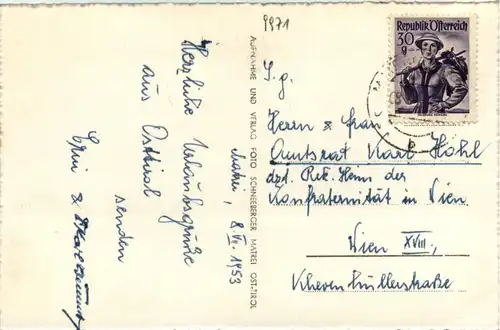 9971
Herzliche Urlaubsgrüße
aus Osttirol
senden
Erni &
AUFNAHME UND VERLAG FOTO SCHNEEBERGER MATREI OST-TIROL
Matrei, 8. VII. 1953
Republik Österreich
30
g
S. g.
Herrn & Frau
Amtsrat Karl Hohl
dzt. Rek. Heim der
Konfraternität in Wien
Wien XVIII,
Khevenhüllerstraße